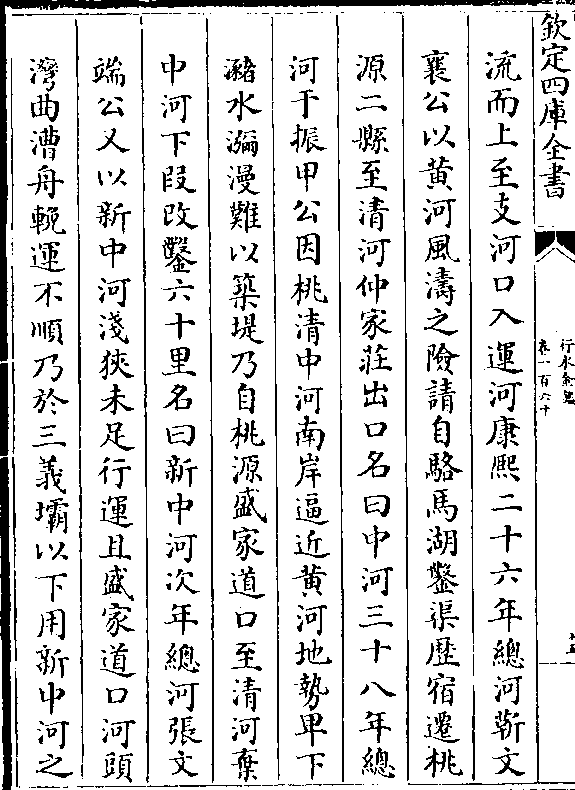 欽定四庫全書
行水金鑑
卷一百六十
流而上至支河口入運河康熙二十六年總河靳文
襄公以黃河風濤之險請自駱馬湖鑿渠歷宿遷桃
源二縣至清河仲家莊出口名曰中河三十八年總
河于振甲公因桃清中河南岸逼近黃河地勢卑下
瀦水瀰漫難以築堤乃自桃源盛家道口至清河棄
中河下段改鑿六十里名曰新中河次年總河張文
端公又以新中河淺狹未足行運且盛家道口河頭
灣曲漕舟輓運不順乃於三義壩以下用新中河之